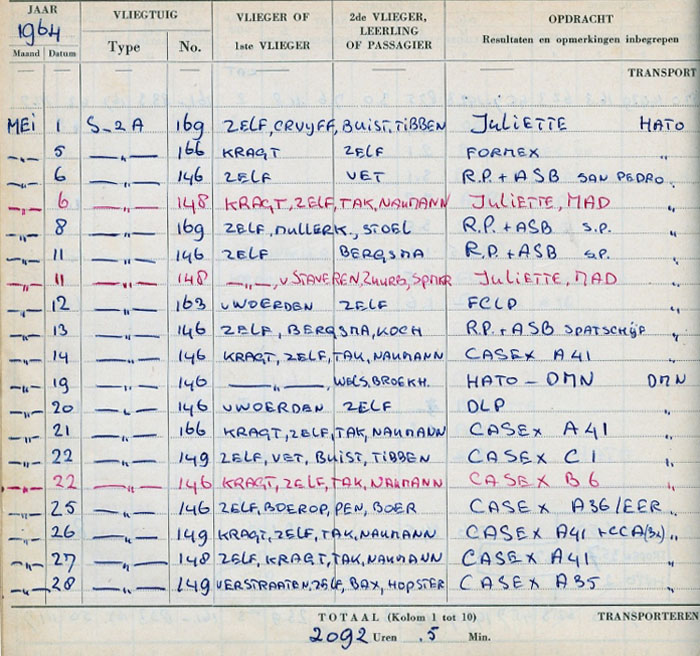 JAAR VLIEGTUIG VLIEGER OF 1ste VLIEGER 2de VLIEGER, LEERLING OF PASSAGIER OPDRACHT
1964
Maand Datum Type No. Resultaten en opmerkingen inbegrepen
TRANSPORT
MEi 1 S-2A 169 ZELF, CRUYFF, BUIST, TIBBEN JULIETTE HATO
—"— 5 —"— 166 KRAGT ZELF FORMEX "
—"— 6 —"— 146 ZELF VET R.P. + ASB SAN PEDRO "
—"— 6 —"— 148 KRAGT, ZELF, TAK, NAUMANN JULIETTE, MAD "
—"— 8 —"— 169 ZELF, MULLERK., STOEL R.P. + ASB S.P. "
—"— 11 —"— 146 ZELF BERGSMA R.P. + ASB S.P. "
—"— 11 —"— 148 —"—, v STAVEREN, ZUURB, JULIETTE, MAD "
—"— 12 —"— 163 v WOERDEN ZELF FCLP "
—"— 13 —"— 146 ZELF, BERGSMA, KOCH R.P. + ASB SPATSCHIJF "
—"— 14 —"— 146 KRAGT, ZELF, TAK, NAUMANN CASEX A41 "
—"— 19 —"— 146 —"—, WELS, BROEKH. HATO - DMN DMN
—"— 20 —"— 146 v WOERDEN ZELF DLP "
—"— 21 —"— 166 KRAGT, ZELF, TAK, NAUMANN CASEX A41 "
—"— 22 —"— 149 ZELF, VET, BUIST, TIBBEN CASEX C1 "
—"— 22 —"— 146 KRAGT, ZELF, TAK, NAUMANN CASEX B6 "
—"— 25 —"— 146 ZELF, BOEROP, PEN, BOER CASEX A36/EER "
—"— 26 —"— 149 KRAGT, ZELF, TAK, NAUMANN CASEX A41 + CCA(3x) "
—"— 27 —"— 148 ZELF, KRAGT, TAK, NAUMANN CASEX A41 "
—"— 28 —"— 149 VERSTRAATEN, ZELF, BAX, HOPSTER CASEX A35 "
TOTAAL (Kolom 1 tot 10) TRANSPORTEREN
2092 Uren .5 Min.